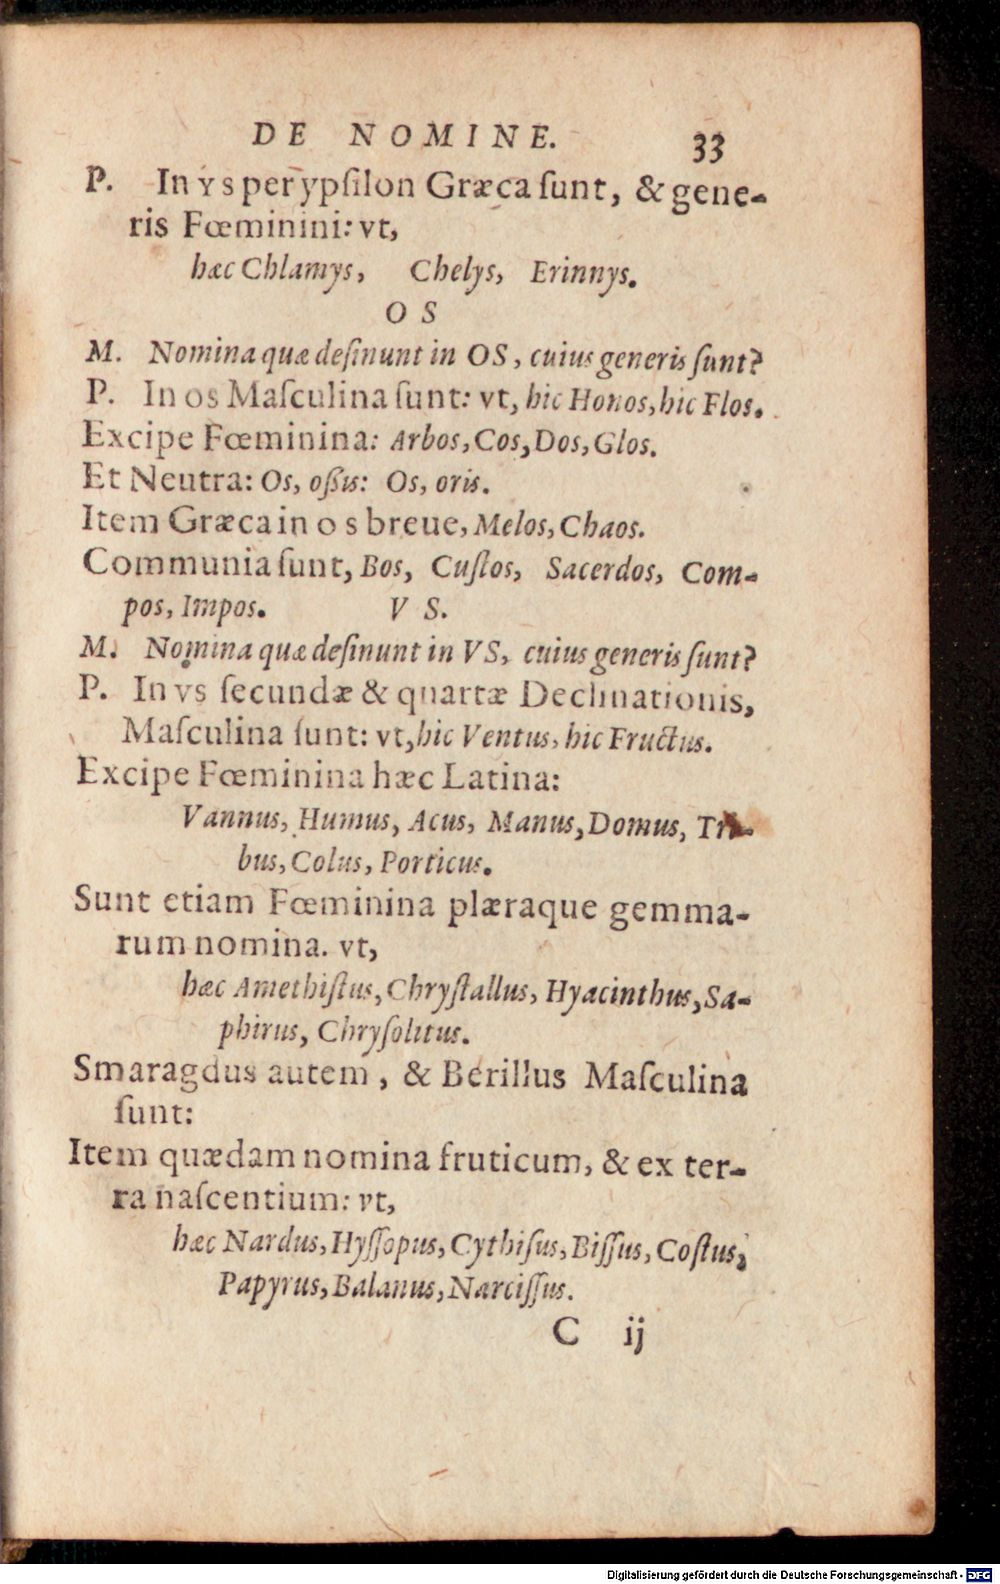 DE NOMINE. 33
P. In ys per ypſilon Græca ſunt, & gene-
ris Fœminini: vt,
hæc Chlamys, Chelys, Erinnys.
O S
M. Nomina quæ deſinunt in OS, cuius generis ſunt?
P. In os Maſculina ſunt: vt, hic Honos, hic Flos.
Excipe Fœminina: Arbos, Cos, Dos, Glos.
Et Neutra: Os, oßis: Os, oris.
Item Græca in o s breue, Melos, Chaos.
Communia ſunt, Bos, Cuſtos, Sacerdos, Com-
pos, Impos. V S.
M. Nomina quæ deſinunt in VS, cuius generis ſunt?
P. In vs ſecundæ & quartæ Declinationis,
Maſculina ſunt: vt, hic Ventus, hic Fructus.
Excipe Fœminina hæc Latina:
Vannus, Humus, Acus, Manus, Domus, Tri-
bus, Colus, Porticus.
Sunt etiam Fœminina plæraque gemma-
rum nomina. vt,
hæc Amethiſtus, Chryſtallus, Hyacinthus, Sa-
phirus, Chryſolitus.
Smaragdus autem, & Berillus Maſculina
ſunt:
Item quædam nomina fruticum, & ex ter-
ra naſcentium: vt,
hæc Nardus, Hyſſopus, Cythiſus, Biſſus, Coſtus,
Papyrus, Balanus, Narciſſus.
C ij
Digitalisierung gefördert durch die Deutsche Forschungsgemeinschaft - DFG